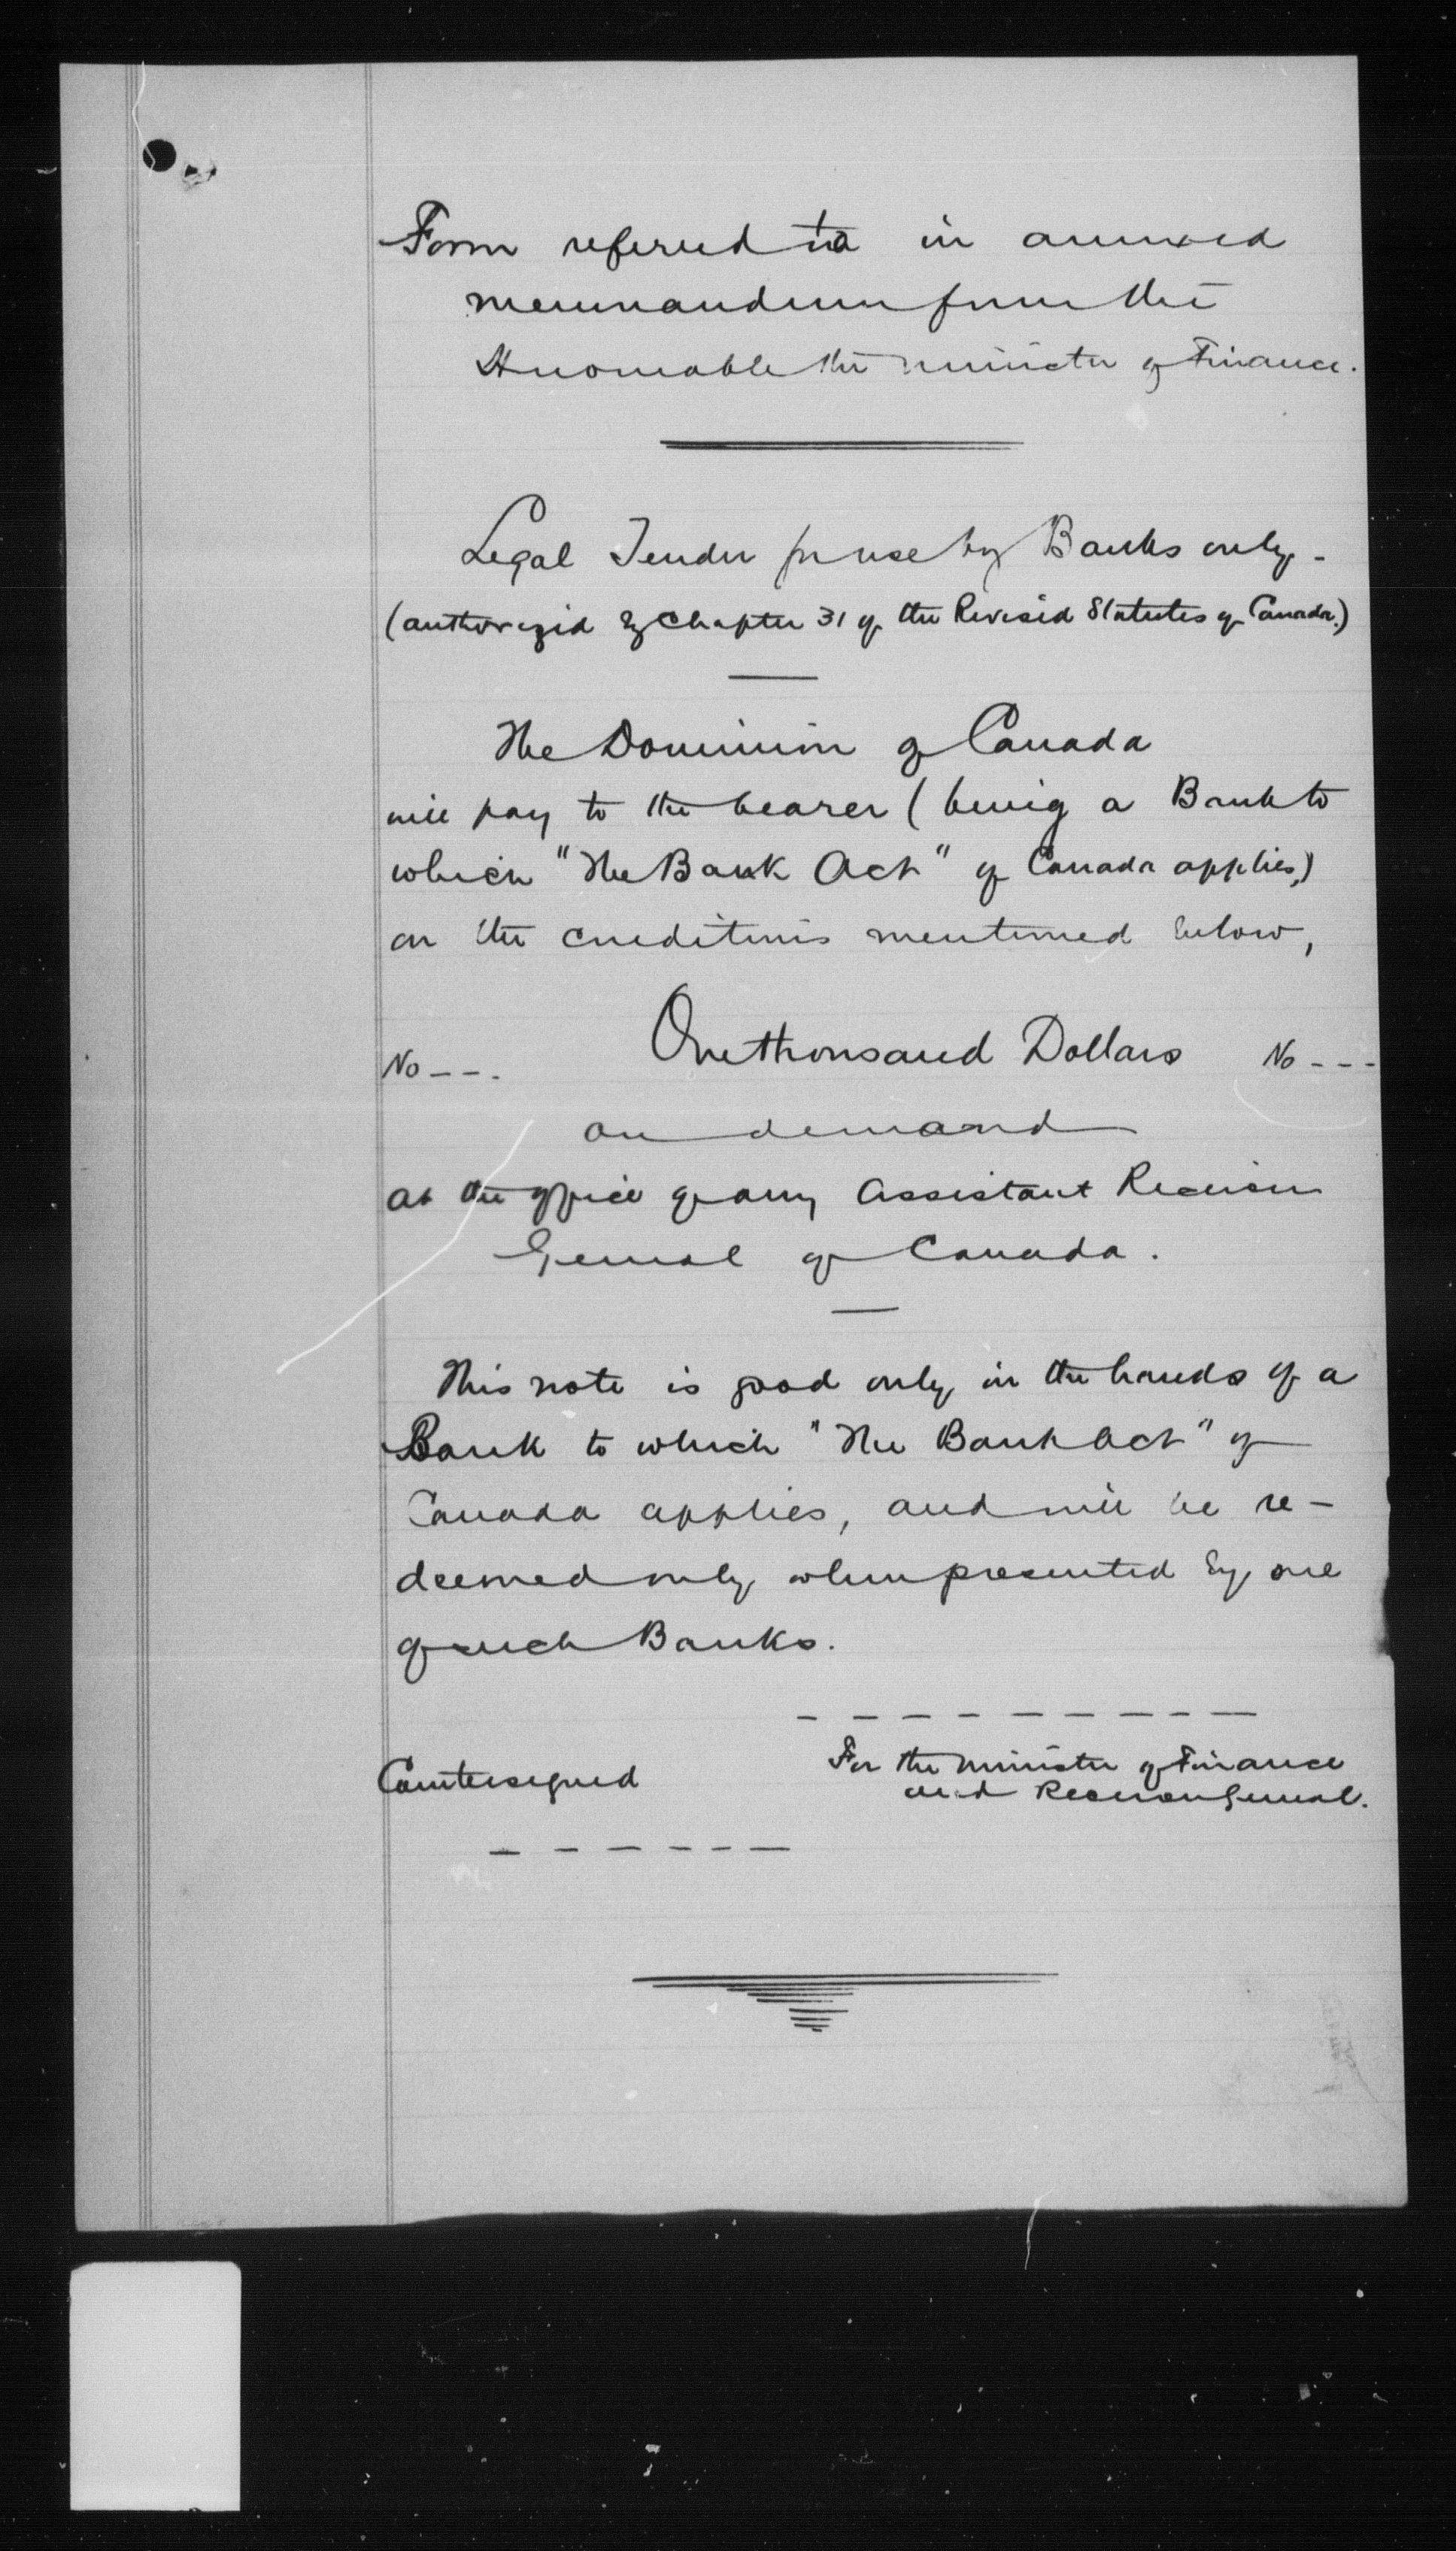 Form referred to in annexed
memorandum from the
Honourable the Minister of Finance.
Legal Tender for use by Banks only -
(authorized by Chapter 31 of the Revised Statutes of Canada.)
The Dominion of Canada
will pay to the bearer (being a Bank to
which "The Bank Act" of Canada applies,)
on the conditions mentioned below,
No --- One thousand Dollars No ---
on demand
at the office of any Assistant Receiver
General of Canada.
This note is good only in the hands of a
Bank to which "The Bank Act" of
Canada applies, and will be re-
deemed only when presented by one
of such Banks.
For the Minister of Finance
and Receiver General.
Countersigned